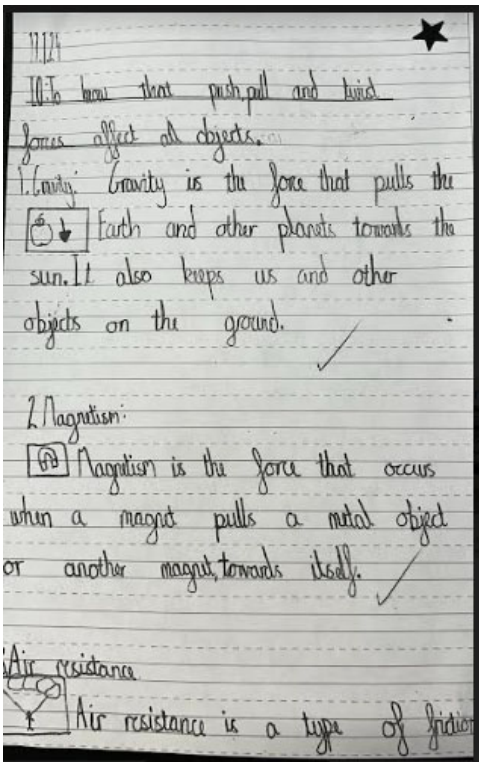 17.1.24
LO:To know that push,pull and twist
forces affect all objects.
1.Gravity: Gravity is the force that pulls the
Earth and other planets towards the
sun.It also keeps us and other
objects on the ground.
2.Magnetism:
Magnetism is the force that occurs
when a magnet pulls a metal object
or another magnet,towards itself.
Air resistance
Air resistance is a type of friction